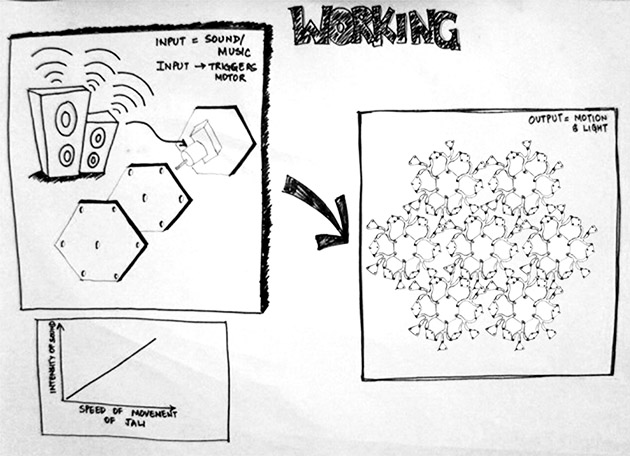 WORKING
INPUT = SOUND/
MUSIC
INPUT → TRIGGERS
MOTOR
OUTPUT = MOTION
& LIGHT
INTENSITY OF SOUND
SPEED OF MOVEMENT
OF JALI